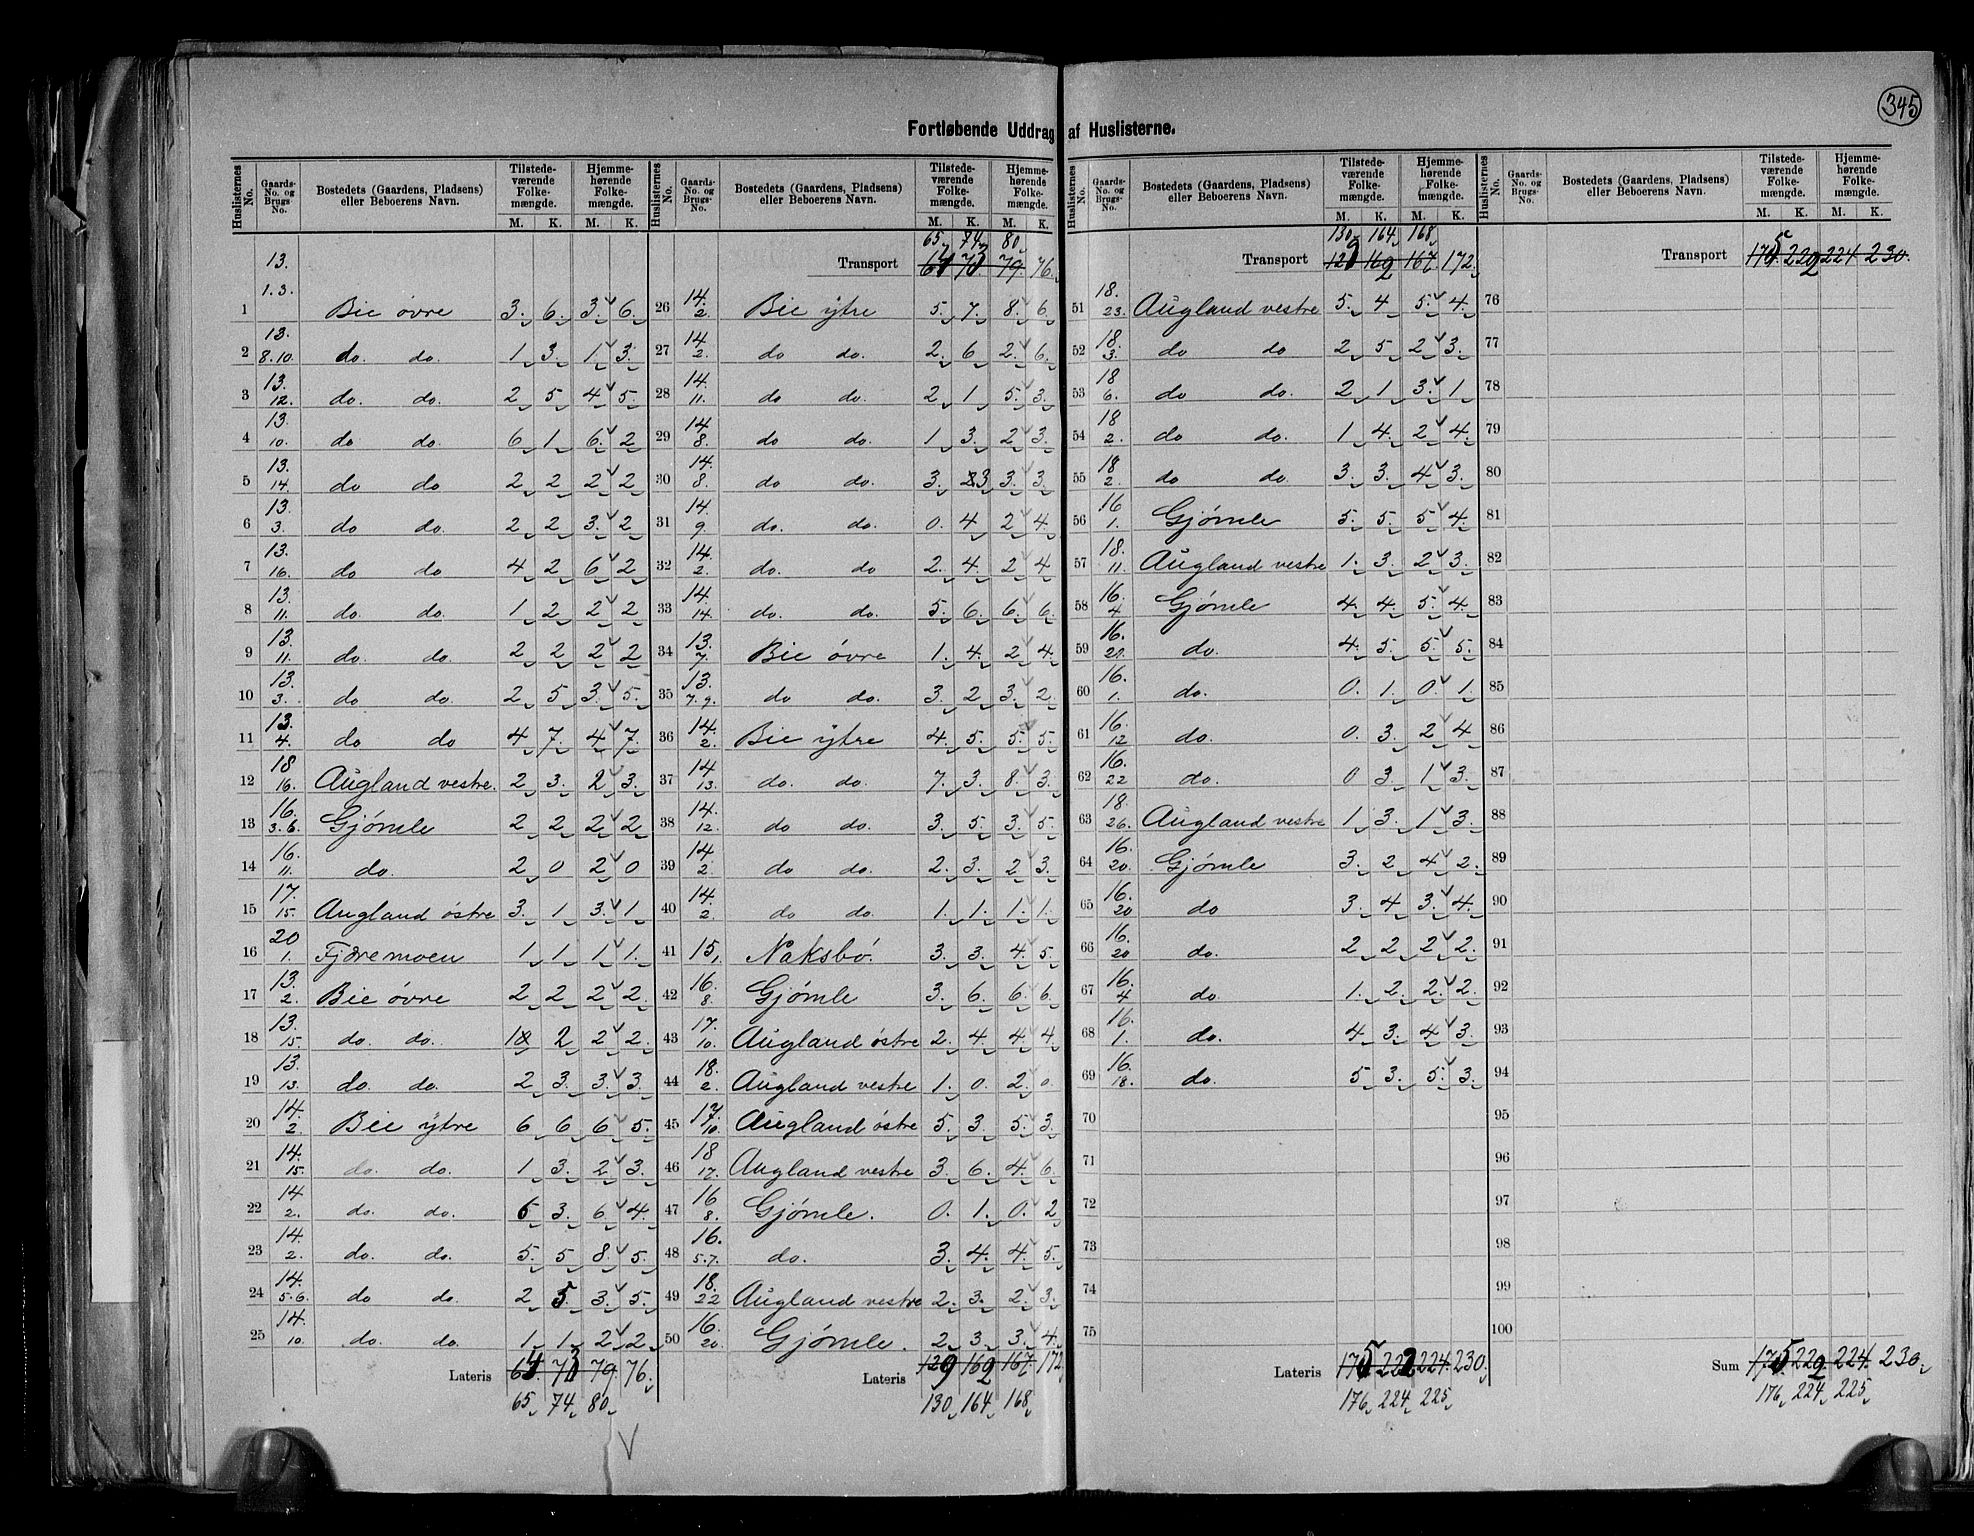 345
Fortløbende Uddrag af Huslisterne.
Huslisternes No. Gaards-No. og Brugs-No. Bostedets (Gaardens, Pladsens) eller Beboerens Navn. Tilstede-værende Folke-mængde. M. K. Hjemme-hørende Folke-mængde. M. K.
1 13. 1.3. Bie øvre 3. 6. 3. 6.
2 13. 8.10. do. do. 1 3. 1 3.
3 13. 12. do. do. 2 5 4 5.
4 13. 10. do do 6 1 6. 2
5 13. 14. do do 2 2 2 2
6 13. 3. do do 2 2 3. 2
7 13. 16. do do 4 2 6 2
8 13. 11. do do. 1 2 2 2
9 13. 11. do. do. 2 2 2 2
10 13. 3. do do. 2 5 3. 5.
11 13. 4. do do 4 7. 4 7.
12 18 16. Augland vestre. 2 3. 2 3.
13 16. 3.6. Gjømle 2 2 2 2
14 16. 11. do. 2 0 2 0
15 17. 15. Augland østre 3. 1 3. 1.
16 20 1. Fjæremoen 1 1 1 1.
17 13. 2. Bie øvre 2 2 2 2.
18 13. 15. do. do. 1 2 2 2.
19 13. 13. do do. 2 3. 3. 3.
20 14. 2. Bie ytre 6 6 6 5.
21 14. 15. do. do. 1 3. 2 3.
22 14 2. do. do. 5 3. 6 4.
23 14. 2. do. do. 5. 5 8. 5.
24 14. 5.6. do do. 2 5. 3. 5.
25 14. 10. do. do. 1. 1. 2 2.
Lateris 64 73 79 76.
65 74 80
Transport 64 73 79. 76.
65 74 80
26 14. 2. Bie ytre 5. 7. 8. 6.
27 14. 2. do do. 2. 6 2. 6.
28 14. 11. do do. 2 1 5. 3.
29 14. 8. do do. 1 3. 2 3.
30 14. 8. do do. 3. 3 3. 3.
31 14. 9. do. do. 0. 4 2 4.
32 14. 2. do. do 2. 4. 2 4
33 14. 14. do. do. 5. 6. 6. 6.
34 13. 7. Bie øvre 1. 4. 2 4.
35 13. 7.9. do do. 3. 2 3. 2.
36 14. 2. Bie ytre 4. 5. 5. 5.
37 14 13. do. do. 7. 3. 8. 3.
38 14. 12. do do. 3. 5. 3. 5.
39 14. 2. do do. 2. 3. 2 3.
40 14. 2. do do. 1. 1. 1. 1.
41 15, 1 Naksbø. 3. 3. 4. 5.
42 16. 8. Gjømle 3. 6. 6. 6.
43 17. 10. Augland østre 2. 4. 4. 4
44 18. 2. Augland vestre 1. 0. 2. 0.
45 17. 10. Augland østre 5. 3. 5. 3.
46 18 17. Augland vestre 3. 6. 4. 6.
47 16 8. Gjømle. 0. 1. 0. 2
48 16. 5.7. do. 3. 4. 4. 5.
49 18. 22 Augland vestre 2. 3. 2. 3.
50 16. 20. Gjømle. 2. 3. 3. 4.
Lateris 129 162 167. 172
130 164 168
Huslisternes No. Gaards-No. og Brugs-No. Bostedets (Gaardens, Pladsens) eller Beboerens Navn. Tilstede-værende Folke-mængde. M. K. Hjemme-hørende Folke-mængde. M. K.
130 164 168
Transport 129 162 167 172
51 18. 23. Augland vestre 5. 4 5. 4.
52 18. 3. do do 2 5 2 3.
53 18 6. do do. 2 1 3. 1
54 18 2. do do. 1 4. 2 4.
55 18 2. do do. 3. 3. 4 3.
56 16 1. Gjømle 5. 5. 5 4.
57 18. 11. Augland vestre 1. 3. 2 3.
58 16. 4 Gjømle 4. 4. 5. 4.
59 16. 21. do. 4. 5. 5. 5.
60 16. 1. do. 0. 1. 0. 1.
61 16. 12 do. 0. 3. 2 4
62 16. 22 do. 0 3. 1 3.
63 18. 26. Augland vestre 1 3. 1 3.
64 16. 20. Gjømle 3. 2 4 2.
65 16. 20 do 3. 4 3. 4.
66 16. 20 do. 2 2 2 2.
67 16. 4 do. 1. 2. 2. 2.
68 16. 1. do. 4 3. 4 3.
69 16. 18. do. 5 3. 5. 3.
70
71
72
73
74
75
Lateris 175 222 224. 230.
176 224 225
Transport 175 222 224. 230.
76
77
78
79
80
81
82
83
84
85
86
87
88
89
90
91
92
93
94
95
96
97
98
99
100
Sum 175 222 224. 230.
176 224 225